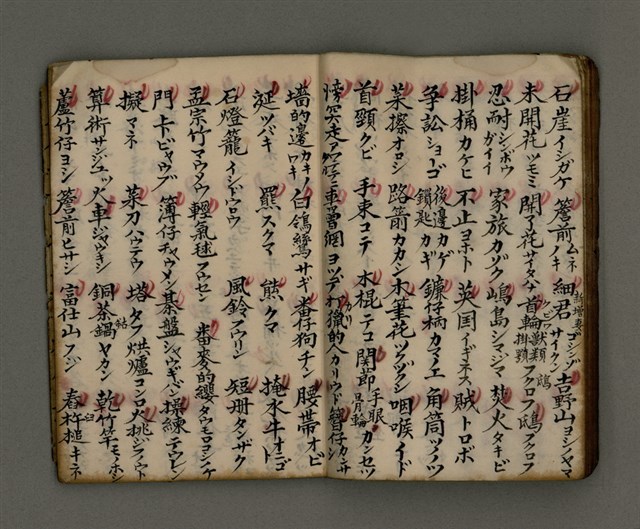 石崖イシガケ 簷前ムネ 細君サイクン 吉野山ヨシノヤマ
未開花ツモミ 開了花サイタハナ 首輪 フクロフ 鴟フクロフ
忍耐シンボウ ガイイ 家族カゾク 嶋島シマジマ 焚火タキビ
掛桶カケヒ 不止ヨホト 英国イギネス 賊トロボ
争訟ショーゴ 後邊カゲ 鎖匙カギ 鐮仔柄カマノエ 角筒ツノツツ
菜擦オロシ 路箭カカシ 木筆花ツクヅクシ 咽喉イド
首頸クビ 手束コテ 木棍テコ 関節カンセツ
墻的邊カキノワキ 白鴒鷥サギ 番仔狗チン 腰帯オビ
ツバキ 羆スクマ 熊クマ 掩水牛オニゴ
石燈籠イシドウロウ 風鈴フウリン 短冊タンザク
孟宗竹マウソウ 輕氣毬フウセン 番麥的鑁タウモロコシノケ
門卡ビヤウブ 簿仔チャウメン 棊盤ショウギバン 操練テウレン
擬マネ 菜刀ハウテウ 塔タフ 烘爐コンロ 火桃
算術サンジユツ 火車ジャウキシ 銅茶鍋ヤカン 乾竹竿モノホシ
蘆竹仔ヨシ 簷前ヒサシ 富仕山フジ 舂杵槌キネ